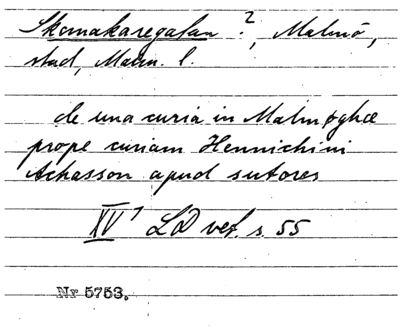 Skomakaregatan ?, Malmö,
stad, Malm. l.
de una curia in Malmøghæ
prope curiam Hennichini
Achasson apud sutores
XV¹ LD vet. s. 55
Nr 5753.